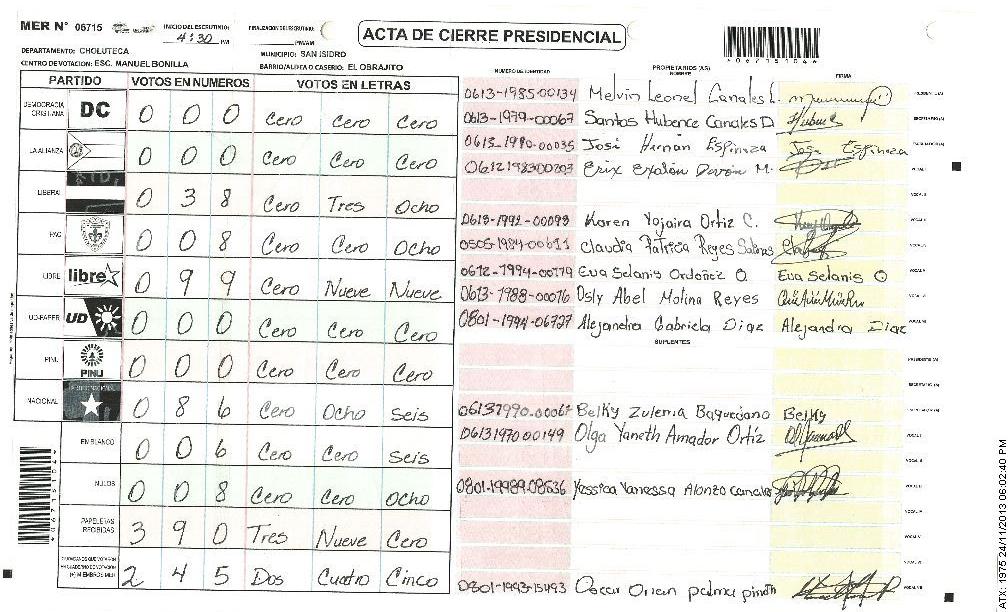 MER N° 06715 INICIO DEL ESCRUTINIO: 4:30 PM FINALIZACION DEL ESCRUTINIO: PM/AM
ACTA DE CIERRE PRESIDENCIAL
*067151046*
DEPARTAMENTO: CHOLUTECA MUNICIPIO: SAN ISIDRO
CENTRO DE VOTACION: ESC. MANUEL BONILLA BARRIO/ALDEA O CASERIO: EL OBRAJITO
PARTIDO VOTOS EN NUMEROS VOTOS EN LETRAS
DEMOCRACIA CRISTIANA DC 0 0 0 Cero Cero Cero
LA ALIANZA 0 0 0 Cero Cero Cero
LIBERAL 0 3 8 Cero Tres Ocho
PAC 0 0 8 Cero Cero Ocho
LIBRE libre 0 9 9 Cero Nueve Nueve
UD-FAPER UD 0 0 0 Cero Cero Cero
PINU PINU 0 0 0 Cero Cero Cero
NACIONAL 0 8 6 Cero Ocho Seis
EN BLANCO 0 0 6 Cero Cero Seis
NULOS 0 0 8 Cero Cero Ocho
PAPELETAS RECIBIDAS 3 9 0 Tres Nueve Cero
CIUDADANOS QUE VOTARON EN CUADERNO DE VOTACION (+) MIEMBROS MER 2 4 5 Dos Cuatro Cinco
NUMERO DE IDENTIDAD PROPIETARIOS (AS) NOMBRE FIRMA
0613-1985-00134 Melvin Leonel Canales L. PRESIDENTE(A)
0613-1979-00067 Santos Hubence Canales D SECRETARIO(A)
0613-1990-00035 José Hernan Espinoza Jose Espinoza ESCRUTADOR(A)
Erix VOCAL I
VOCAL II
0613-1992-00098 Karen Yojaira Ortiz C. VOCAL III
0505-1984-00611 Claudia Patricia Reyes VOCAL IV
0612-1994-00179 Eva Selanis Ordoñez O. Eva Selanis O VOCAL V
0613-1988-00076 Osly Abel Molina Reyes
0801-1994-06727 Alejandra Gabriela Diaz Alejandra Diaz
SUPLENTES
PRESIDENTE (A)
SECRETARIO (A)
Belky Zulema Belky
0613197000149 Olga Yaneth Amador Ortíz VOCAL I
VOCAL II
Yessica Vanessa Alonzo Canales VOCAL III
VOCAL IV
VOCAL VI
0801-1993-15493 Oscar palma VOCAL VII
*067151046*
CATX: 1975 24/11/2013 06:02:40 PM